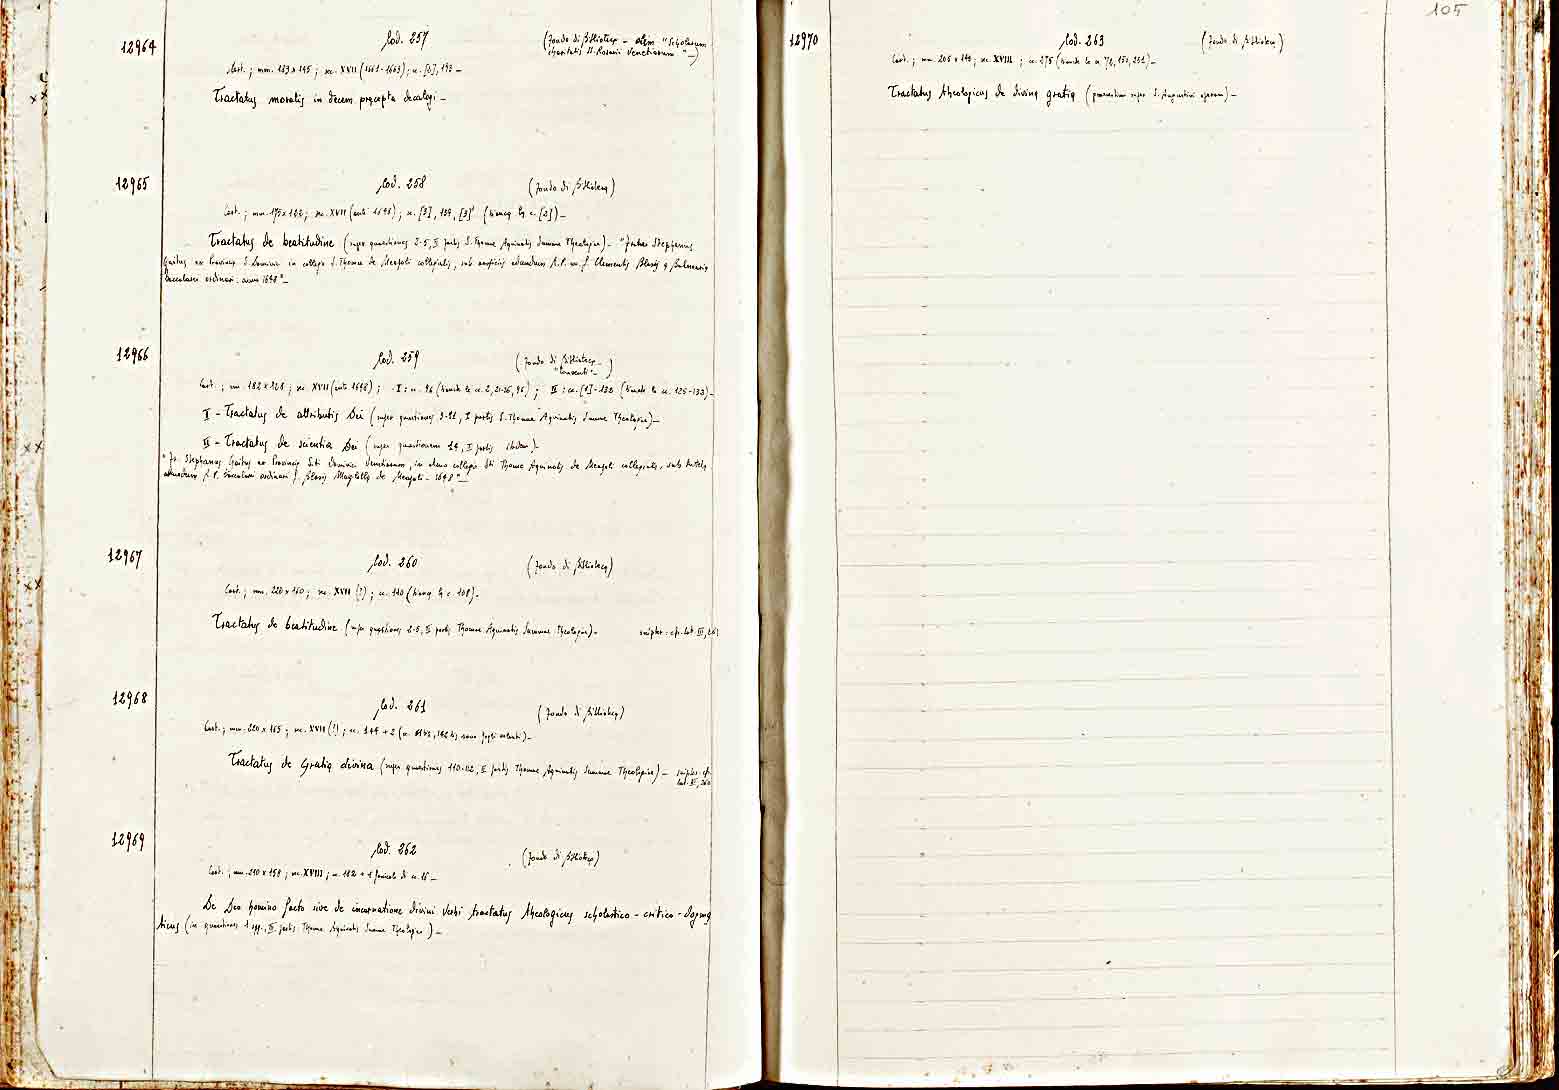 12964
Cod. 257
(Fondo di Biblioteca - olim "Scholarum
charitatis SS. Rosarii Venetiarum" -)
Cart.; mm. 193 x 145; sec. XVII (1661-1663); c. [2], 193 -
Tractatus moralis in decem precepta decalogi -
12965
Cod. 258
(Fondo di Biblioteca)
Cart.; mm. 175 x 122; sec. XVII (ante 1698); c. [3], 139, [3]' (bianca la c. [2]) -
Tractatus de beatitudine (super questiones 2-5, II partis S. Thomae Aquinatis Summae Theologiae) - "Frater Stephanus
ex Provincia S. Dominici in collegio S. Thomae de Neapoli collegialis, sub auspiciis admodum R.P. Clementis
Baccalaurei ordinarii. anno 1698" -
12966
Cod. 259
(Fondo di Biblioteca -
"Conventi" -)
Cart.; mm. 182 x 128; sec. XVII (ante 1698); I: c. 96 (bianche le cc. 2, 21-26, 96); II: cc. [1] - 132 (bianche le cc. 125-133) -
I - Tractatus de attributis Dei (super questiones 2-11, I partis S. Thomae Aquinatis Summae Theologiae) -
II - Tractatus de scientia Dei (super quaestionem 14, I partis ibidem) -
Stephanus ex Provincia Sti Dominici Venetiarum, in almo collegio Sti Thomae Aquinatis de Neapoli collegialis, sub tutela
admodum R.P. Baccalarei ordinarii de Neapoli - 1698" -
12967
Cod. 260
(Fondo di Biblioteca)
Cart.; mm. 220 x 160; sec. XVII (?); cc. 110 (bianca la c. 108) -
Tractatus de beatitudine (super questiones 2-5, II partis Thomae Aquinatis Summae Theologiae) -
12968
Cod. 261
(Fondo di Biblioteca)
Cart.; mm. 220 x 165; sec. XVII (?); cc. 144 + 2 (cc. 142 bis sono fogli volanti) -
Tractatus de Gratia divina (super questiones 110-112, II partis Thomae Aquinatis Summae Theologiae) -
12969
Cod. 262
(Fondo di Biblioteca)
Cart.; mm. 210 x 158; sec. XVIII; c. 182 + 1 fascicolo di cc. 16 -
De Deo homine facto sive de incarnatione divini verbi tractatus theologicus scholastico - critico - dogma
ticus (in questiones 1 sgg., III partis Thomae Aquinatis Summae Theologiae) -
105
12970
Cod. 263
(Fondo di Biblioteca)
Cart.; mm. 205 x 145; sec. XVIII; c. 275 (bianche le cc. 78, 150, 251) -
Tractatus theologicus de divina gratia (praesertim super S. Augustini operam) -